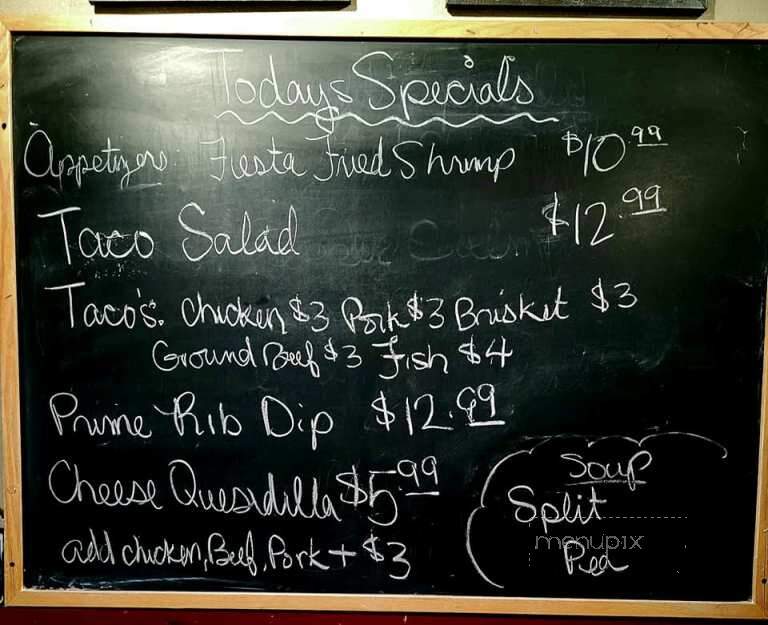 Todays Specials
Appetizers: Fiesta Fried Shrimp $10.99
Taco Salad $12.99
Taco's: Chicken $3 Pork $3 Brisket $3
Ground Beef $3 Fish $4
Prime Rib Dip $12.99
Cheese Quesidilla $5.99
add chicken, Beef, Pork + $3
Soup
Split
menupix
Pea